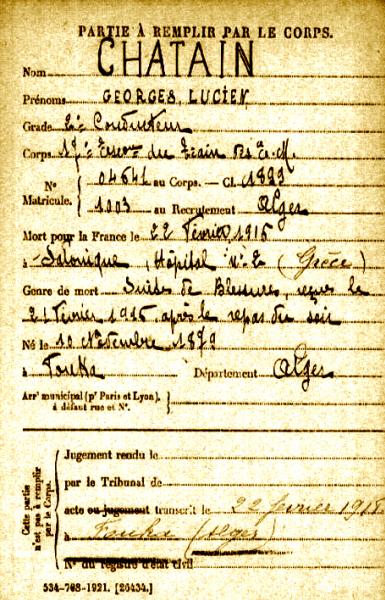 PARTIE À REMPLIR PAR LE CORPS.
Nom CHATAIN
Prénoms GEORGES, LUCIEN
Grade 2e Conducteur
Corps du Train des
N° 04641 au Corps. — Cl. 1899
Matricule. 1003 au Recrutement Alger
Mort pour la France le 22 Février 1916
à Salonique, Hôpital N° 2 (Grèce)
Genre de mort Suites de Blessure, reçues le
21 février 1916 après le repas du soir
Né le 10 1879
à Fouka Département Alger
Arrt municipal (pr Paris et Lyon),
à défaut rue et N°.
Cette partie
n'est pas à remplir
par le Corps.
Jugement rendu le
par le Tribunal de
acte ou jugement transcrit le 22 février
à Fouka (Alger)
N° du registre d'état civil
534-708-1921. [26434.]